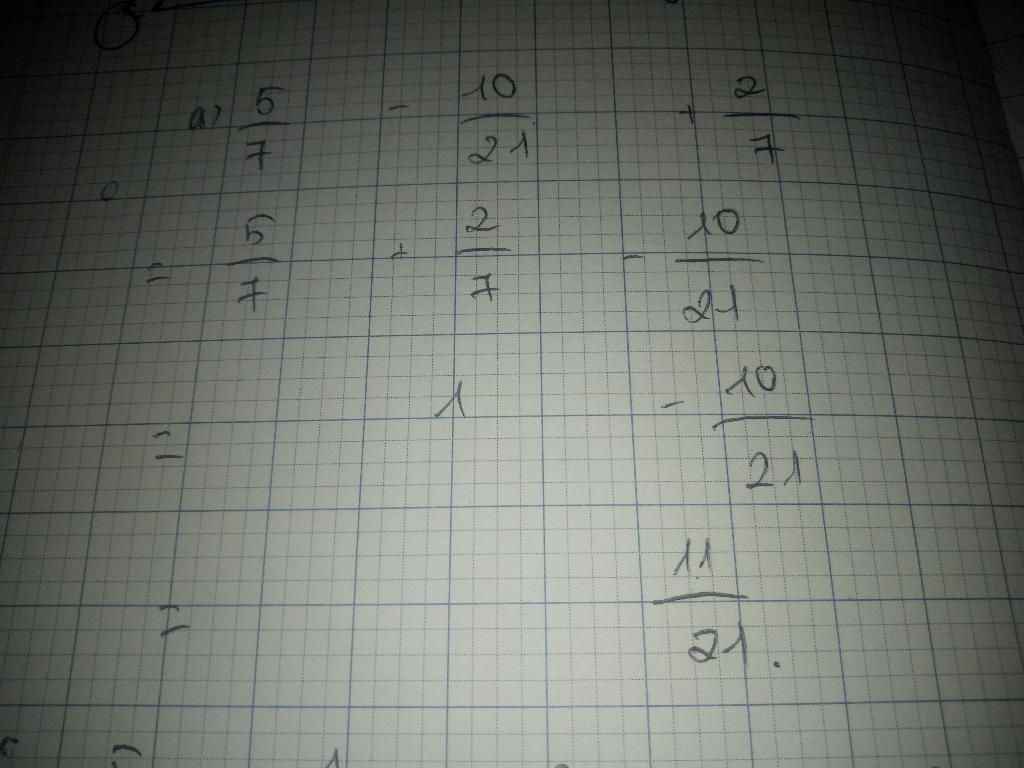 a) 5/7 - 10/21 + 2/7
= 5/7 + 2/7 - 10/21
= 1 - 10/21
= 11/21.